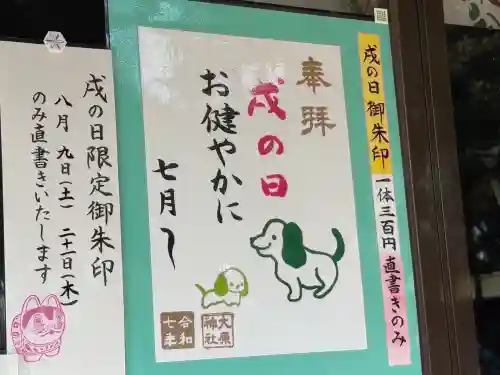 戌の日 御朱印
一体三百円 直書きのみ
奉拝
戌の日
お健やかに
七月〜
大原
神社
令和
七年
戌の日限定御朱印
八月 九日(土) 二十一日(木)
のみ直書きいたします